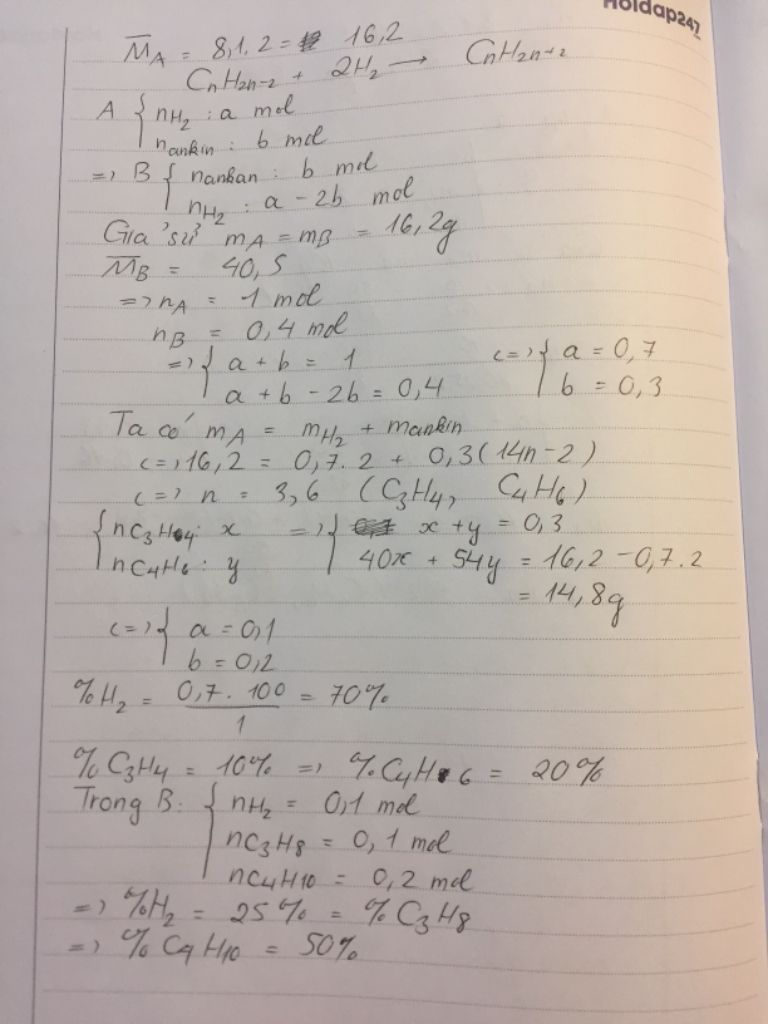 Hoidap247
M̅A = 8,1.2 = 16,2
CnH2n-2 + 2H2 → CnH2n+2
A { nH2 : a mol
nankin : b mol
=> B { nankan : b mol
nH2 : a - 2b mol
Giả sử mA = mB = 16,2g
M̅B = 40,5
=> nA = 1 mol
nB = 0,4 mol
=> { a + b = 1 <=> { a = 0,7
a + b - 2b = 0,4 b = 0,3
Ta có mA = mH2 + mankin
<=> 16,2 = 0,7.2 + 0,3(14n-2)
<=> n = 3,6 (C3H4, C4H6)
{ nC3H4: x => { x + y = 0,3
nC4H6 : y 40x + 54y = 16,2 - 0,7.2
= 14,8g
<=> { a = 0,1
b = 0,2
%H2 = 0,7.100 = 70%
1
%C3H4 = 10% => %C4H6 = 20%
Trong B: { nH2 = 0,1 mol
nC3H8 = 0,1 mol
nC4H10 = 0,2 mol
=> %H2 = 25% = %C3H8
=> %C4H10 = 50%